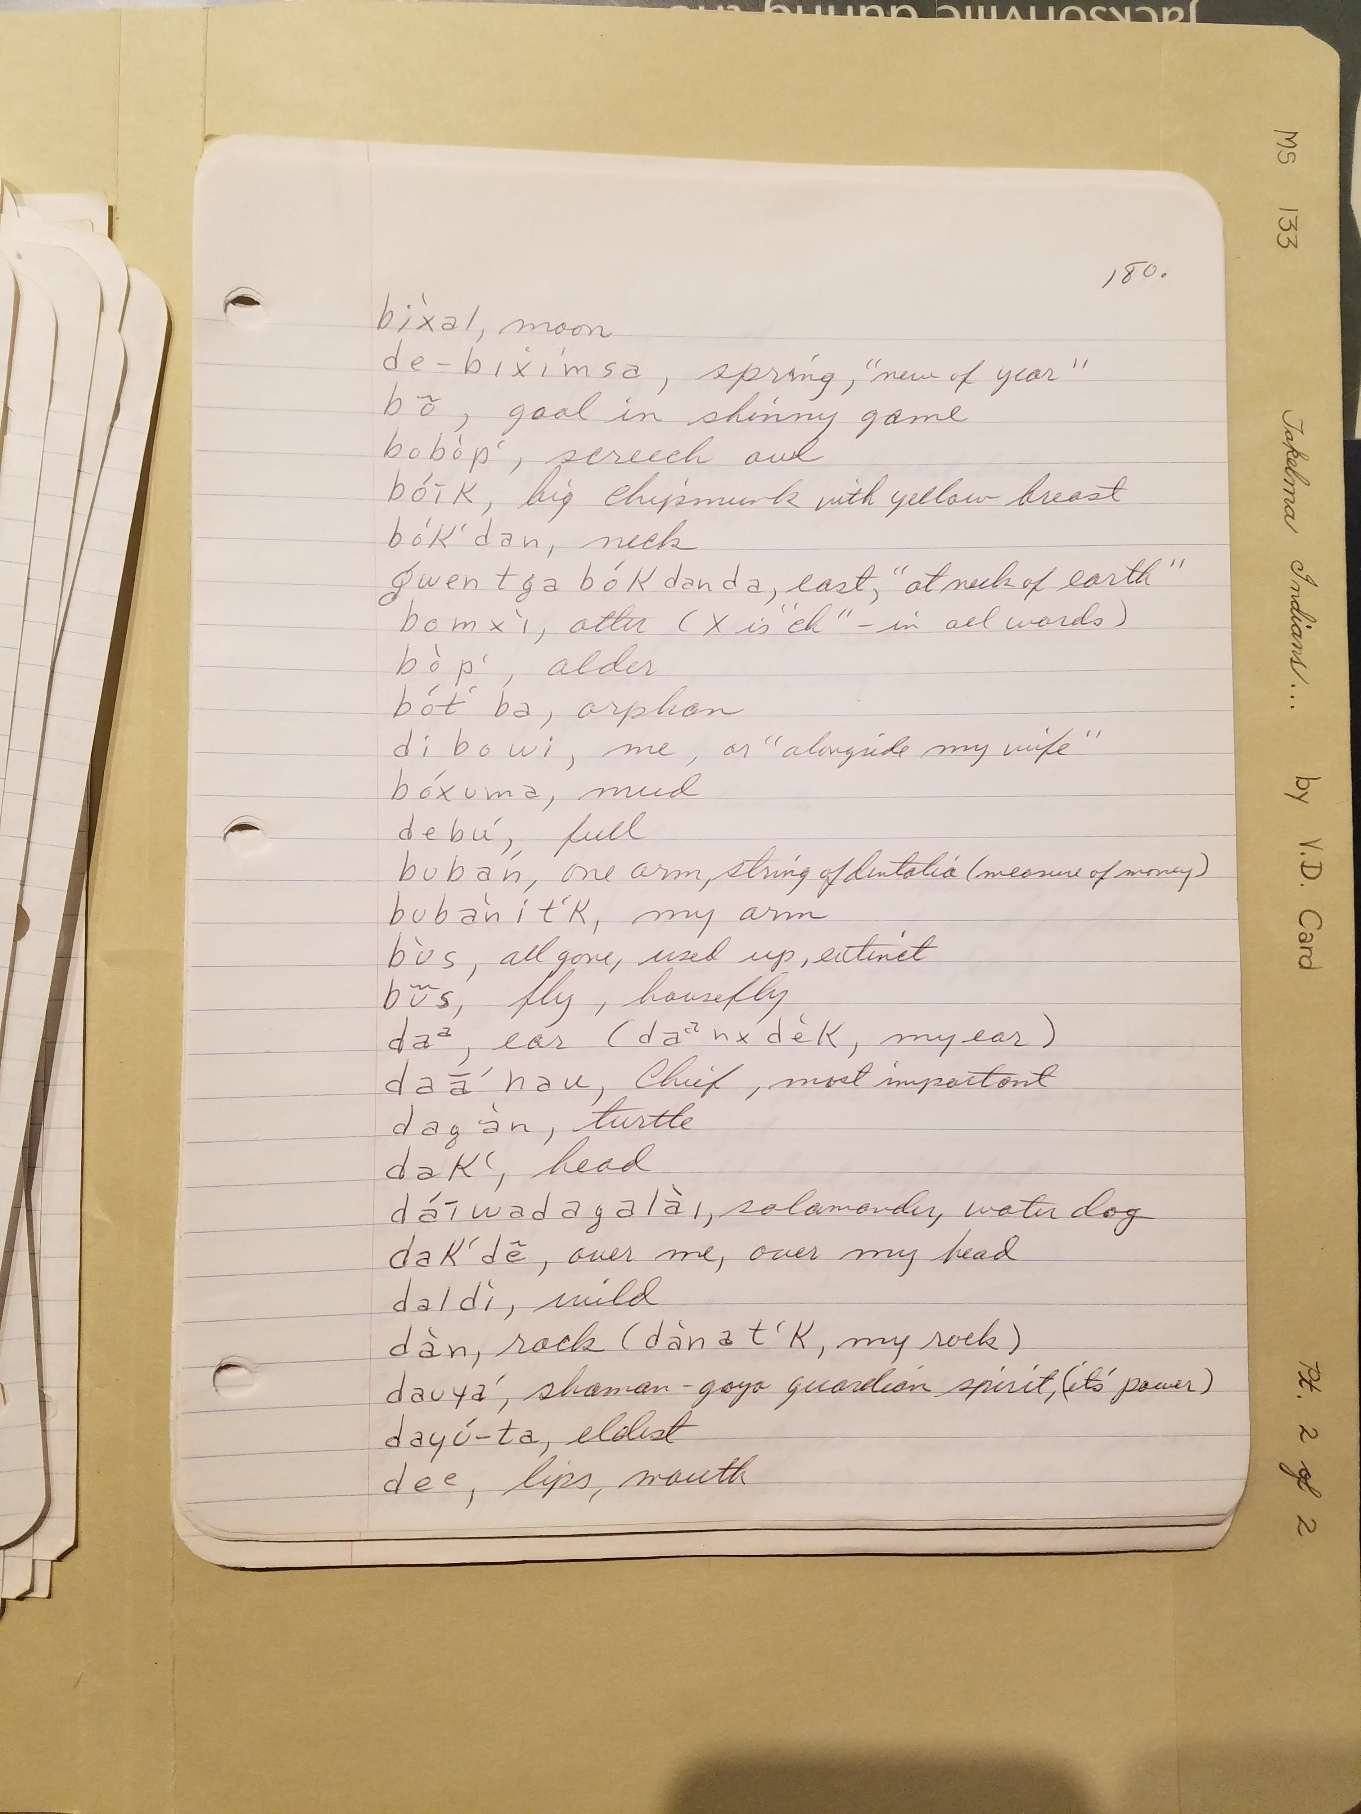 Jacksonville during the
180.
bìxal, moon
de-bixímsa, spring, "new of year"
bõ, goal in shinny game
bobòp', screech owl
bóīk, big chipmunk with yellow breast
bók'dan, neck
gwentga bókdanda, east, "at neck of earth"
bomxì, otter (x is "ch" - in all words)
bòp', alder
bót' ba, orphan
dibowi, me, or "alongside my wife"
bóxuma, mud
debú, full
bubań, one arm, string of dentalia (measure of money)
bubànit'k, my arm
bùs, all gone, used up, extinct
bũs, fly, housefly
daᵃ, ear (daᵃnxdèk, my ear)
daā́nau, Chief, most important
dagàn, turtle
dak', head
dáīwadagalàı, salamander, water dog
dak'dẽ, over me, over my head
daldì, wild
dàn, rock (dànat'k, my rock)
dauyá, shaman-goyo guardian spirit, (it's power)
dayú-ta, eldest
deᵉ, lips, mouth
MS 133 Takelma Indians... by V.D. Card Pt. 2 of 2